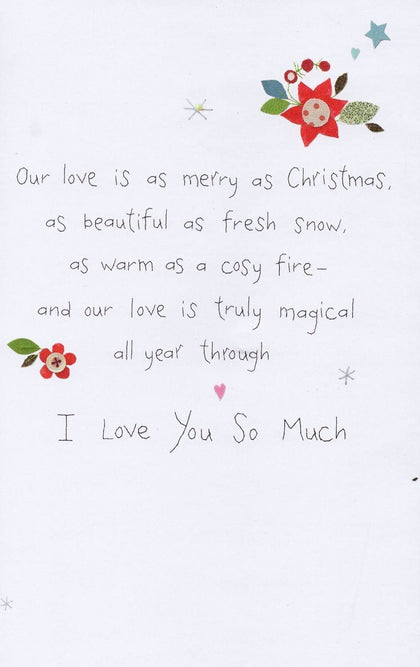 Our love is as merry as Christmas,
as beautiful as fresh snow,
as warm as a cosy fire–
and our love is truly magical
all year through
I Love You So Much